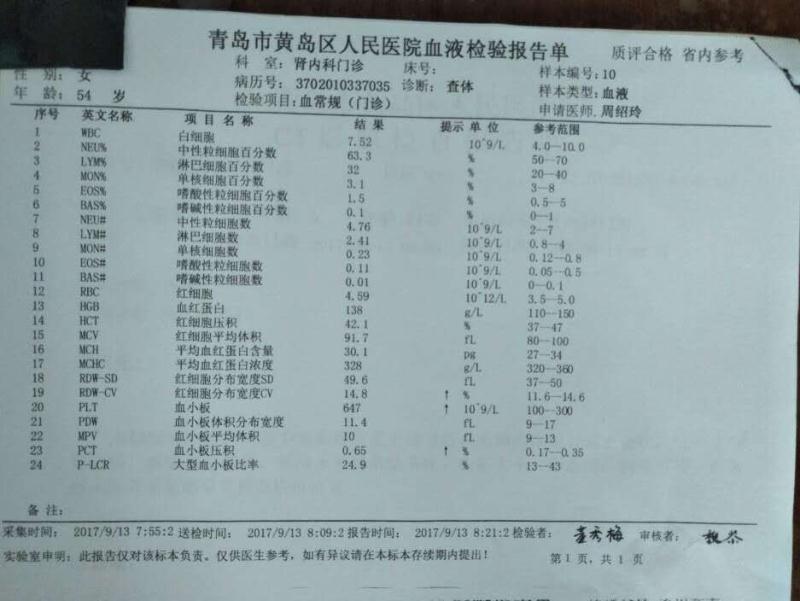 青岛市黄岛区人民医院血液检验报告单 质评合格 省内参考
科 室: 肾内科门诊 床号: 样本编号: 10
性 别: 女 病历号: 3702010337035 诊断: 查体 样本类型: 血液
年 龄: 54 岁 检验项目: 血常规(门诊) 申请医师. 周绍玲
序号 英文名称 项 目 名 称 结 果 提示 单 位 参考范围
1 WBC 白细胞 7.52 10^9/L 4.0--10.0
2 NEU% 中性粒细胞百分数 63.3 % 50--70
3 LYM% 淋巴细胞百分数 32 % 20--40
4 MON% 单核细胞百分数 3.1 % 3--8
5 EOS% 嗜酸性粒细胞百分数 1.5 % 0.5--5
6 BAS% 嗜碱性粒细胞百分数 0.1 % 0--1
7 NEU# 中性粒细胞数 4.76 10^9/L 2--7
8 LYM# 淋巴细胞数 2.41 10^9/L 0.8--4
9 MON# 单核细胞数 0.23 10^9/L 0.12--0.8
10 EOS# 嗜酸性粒细胞数 0.11 10^9/L 0.05--0.5
11 BAS# 嗜碱性粒细胞数 0.01 10^9/L 0--0.1
12 RBC 红细胞 4.59 10^12/L 3.5--5.0
13 HGB 血红蛋白 138 g/L 110--150
14 HCT 红细胞压积 42.1 % 37--47
15 MCV 红细胞平均体积 91.7 fL 80--100
16 MCH 平均血红蛋白含量 30.1 pg 27--34
17 MCHC 平均血红蛋白浓度 328 g/L 320--360
18 RDW-SD 红细胞分布宽度SD 49.6 fL 37--50
19 RDW-CV 红细胞分布宽度CV 14.8 ↑ % 11.6--14.6
20 PLT 血小板 647 ↑ 10^9/L 100--300
21 PDW 血小板体积分布宽度 11.4 fL 9--17
22 MPV 血小板平均体积 10 fL 9--13
23 PCT 血小板压积 0.65 ↑ % 0.17--0.35
24 P-LCR 大型血小板比率 24.9 % 13--43
备 注:
采集时间: 2017/9/13 7:55:2 送检时间: 2017/9/13 8:09:2 报告时间: 2017/9/13 8:21:2 检验者: 董秀梅 审核者:
实验室申明: 此报告仅对该标本负责。仅供医生参考, 如有异议请在本标本存续期内提出! 第 1 页, 共 1 页